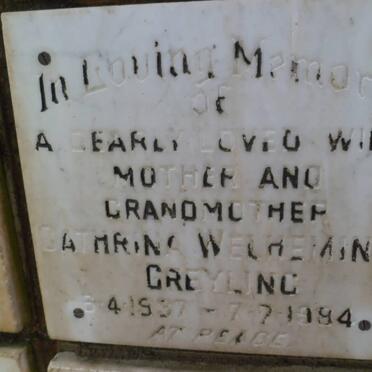 In Loving Memor
of
A DEARLY LOVED WIF
MOTHER AND
GRANDMOTHER
CATHRINA WELHEMIN
GREYLING
3-4-1937 - 7-7-1984
AT PEACE